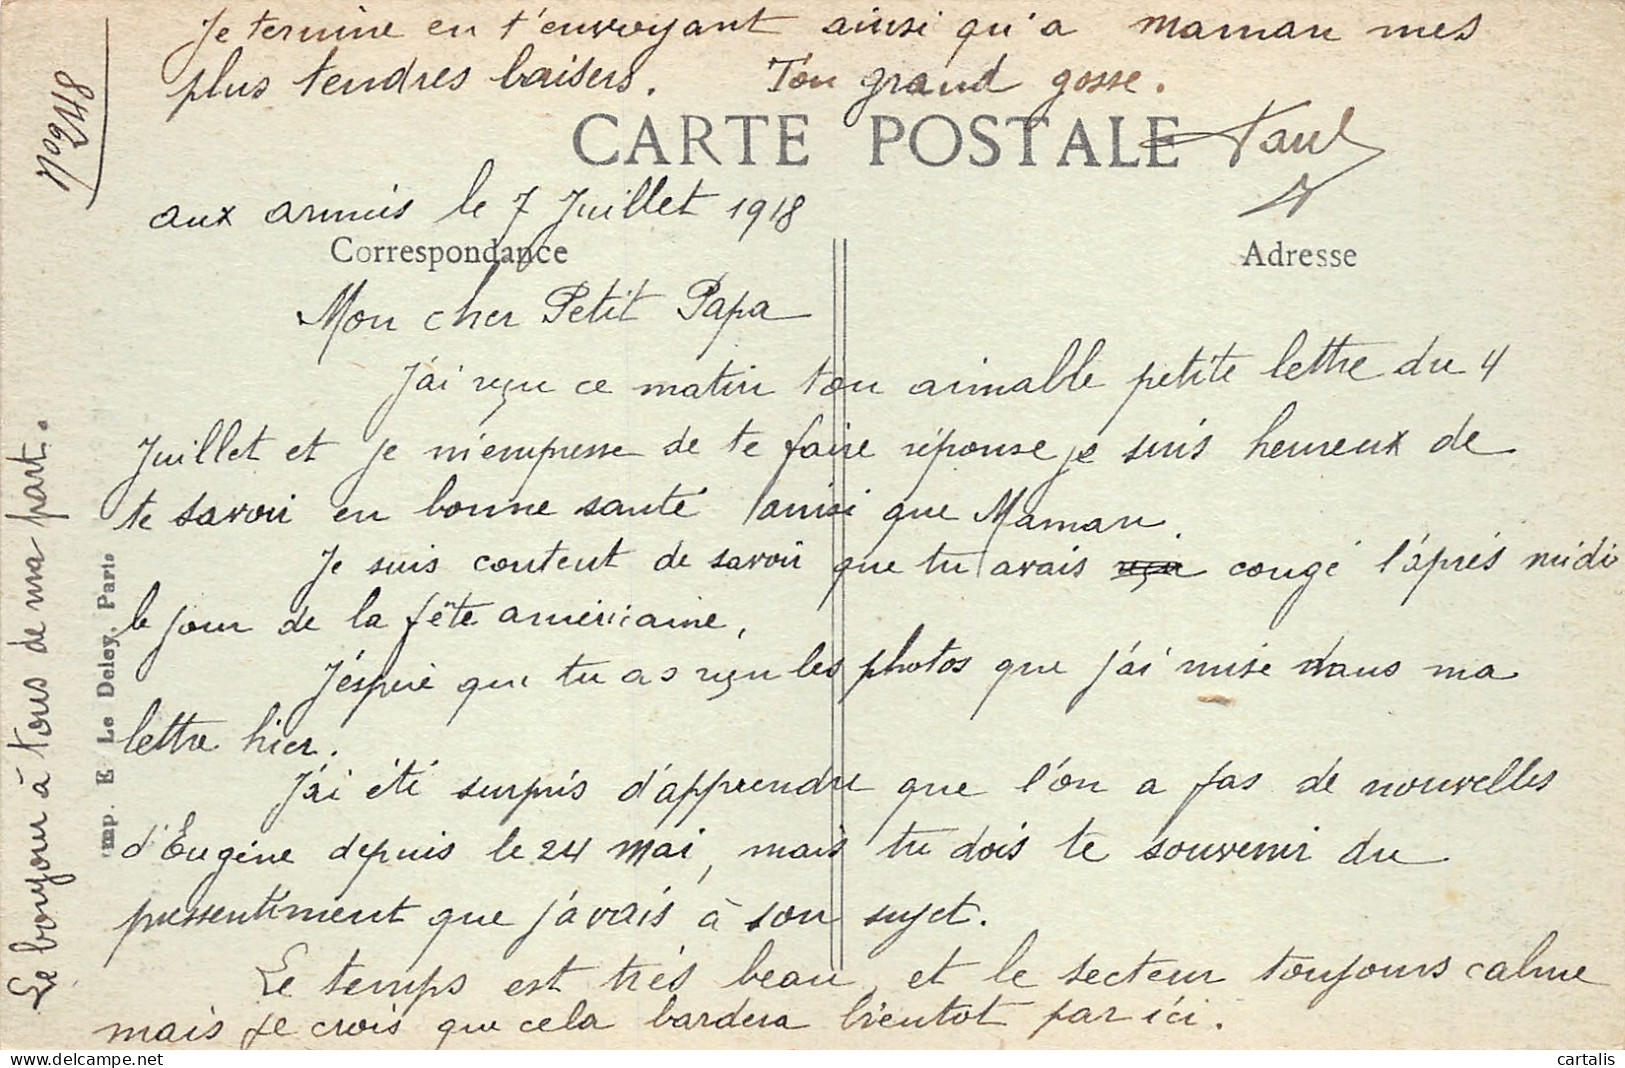 Je termine en t'envoyant ainsi qu'a maman mes
plus tendres baisers. Ton grand gosse.
Paul
N° 248
CARTE POSTALE
aux armées le 7 Juillet 1918
Correspondance
Adresse
Mon cher Petit Papa
J'ai reçu ce matin ton aimable petite lettre du 4
Juillet et je m'empresse de te faire réponse je suis heureux de
te savoir en bonne santé ainsi que Maman.
Je suis content de savoir que tu avais reçu congé l'après midi
le jour de la fête américaine,
J'espère que tu as reçu les photos que j'ai mise dans ma
lettre hier.
J'ai été surpris d'apprendre que l'on a pas de nouvelles
d'Eugène depuis le 24 Mai, mais tu dois te souvenir du
pressentiment que j'avais à son sujet.
Le temps est très beau et le secteur toujours calme
mais je crois que cela bardera bientot par ici.
Le bonjour à tous de ma part.
imp. E Le Deley, Paris
cartalis